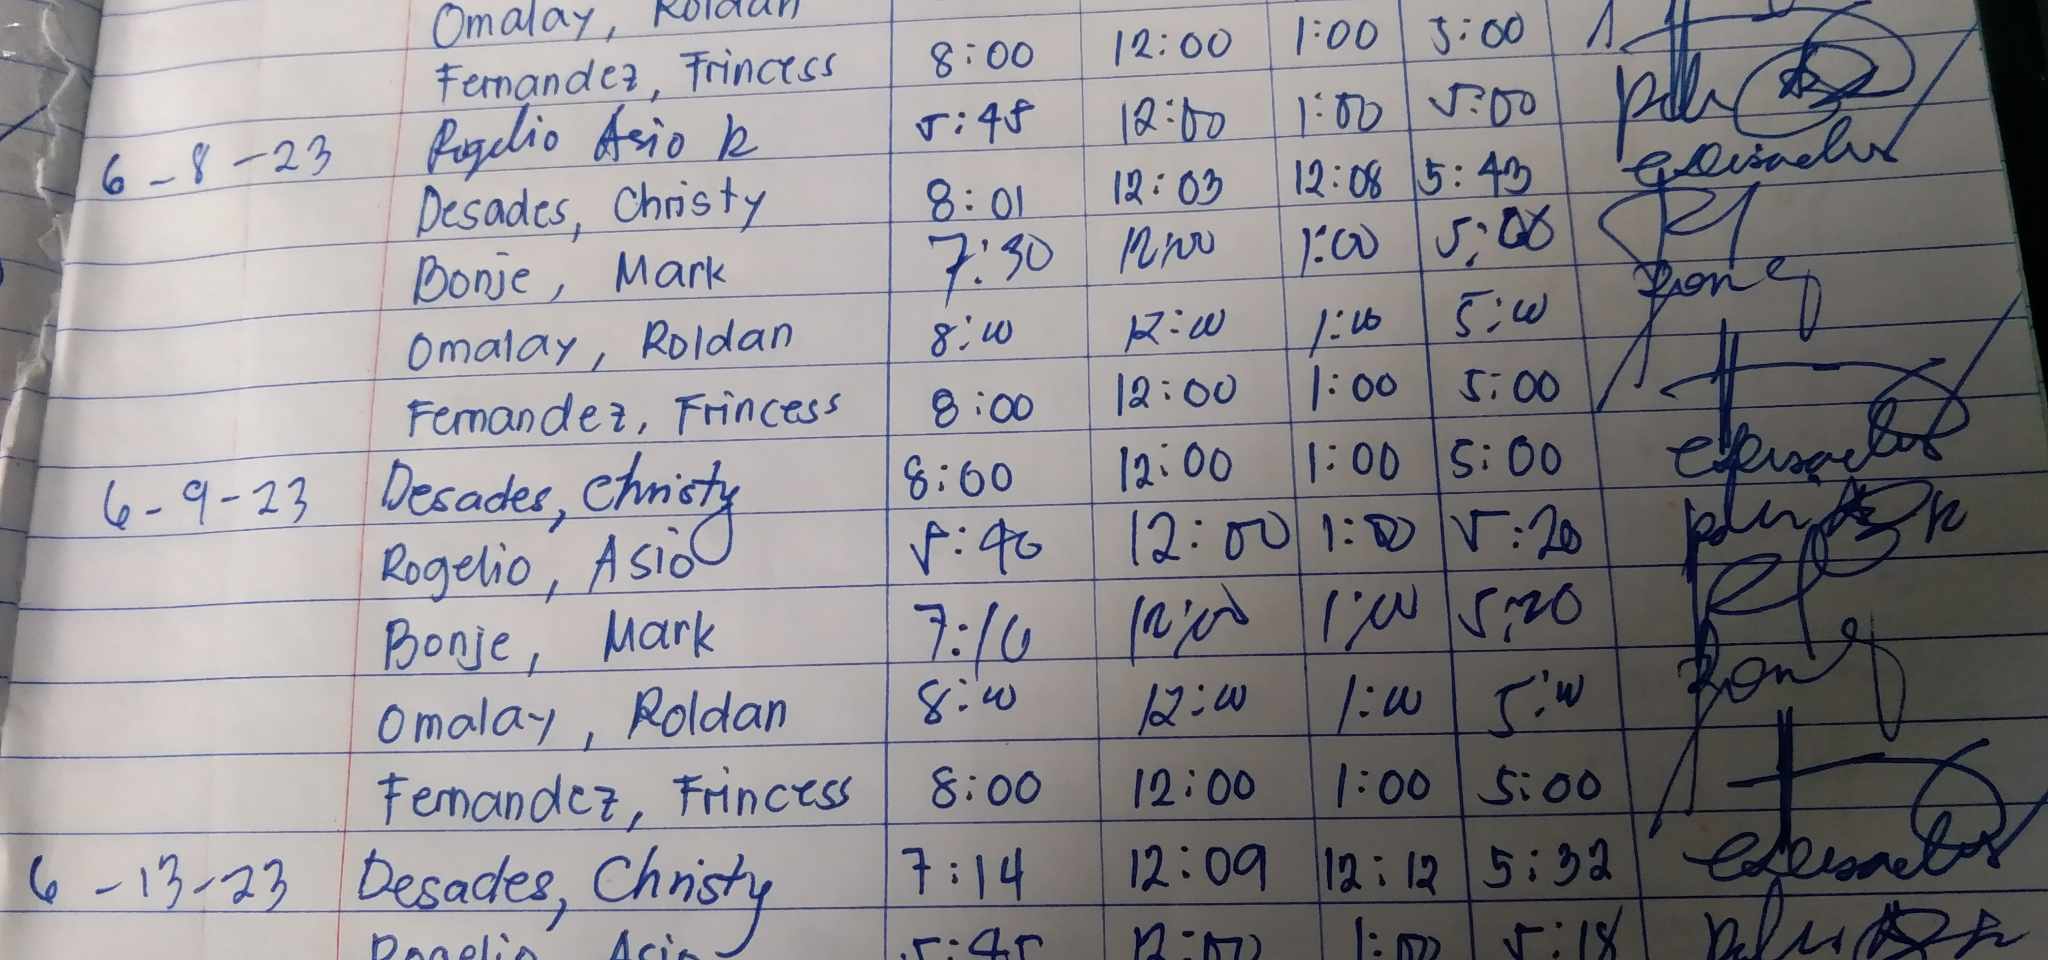 Omalay, Roldan
Fernandez, Frincess 8:00 12:00 1:00 5:00
6-8-23 Rogelio Asio k 5:45 12:00 1:00 5:00
Desades, Christy 8:01 12:03 12:08 5:43
Bonje, Mark 7:30 12:00 1:00 5:00
Omalay, Roldan 8:00 12:00 1:00 5:00
Fernandez, Frincess 8:00 12:00 1:00 5:00
6-9-23 Desades, Christy 8:00 12:00 1:00 5:00
Rogelio, Asio 5:40 12:00 1:00 5:20
Bonje, Mark 7:16 12:00 1:00 5:20
Omalay, Roldan 8:00 12:00 1:00 5:00
Fernandez, Frincess 8:00 12:00 1:00 5:00
6-13-23 Desades, Christy 7:14 12:09 12:12 5:32
Rogelio Asio 5:45 12:00 1:00 5:18